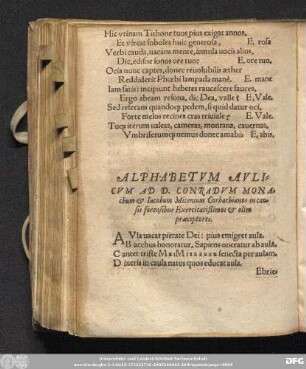 Hic vtinam Tithone tuos pius exigat annos,
Et vireat soboles huic generosa, E. rosa
Verbi cruda, uacans mente, uocis alias,
Dic, edisne sonos ore tuo? E. ore tuo,
Ocia nunc captes, donec reuolubilis æther
Reddiderit Phœbi lampada manè. E. mane
Iam satis: incipiunt hebetes raucescere fauces,
Ergo abeam resona, dic Dea, vasle? E. Vale.
Sed referam quandoq; pedem, si quid datur oci,
Forte melos recines cras triuiale? E. Vale.
Tuq; iterum ualeas, cameras, montana, cauernas,
Vmbriferumq; nemus donec amabis E. abis.
ALPHABETVM AVLI-
CVM AD D. CONRADVM MONA-
chum & Iacobum Micenium Corbachianos in cau-
sis forensibus Exercitatissimos & olim
præceptores.
AVla uacat pietate Dei: pius emigret aula.
Buccbus honoratur, Sapiens oneratur ab aula,
Cantet triste senecta per aulam.
Diuersa in causa natos quos educat aula.
Ebrie-